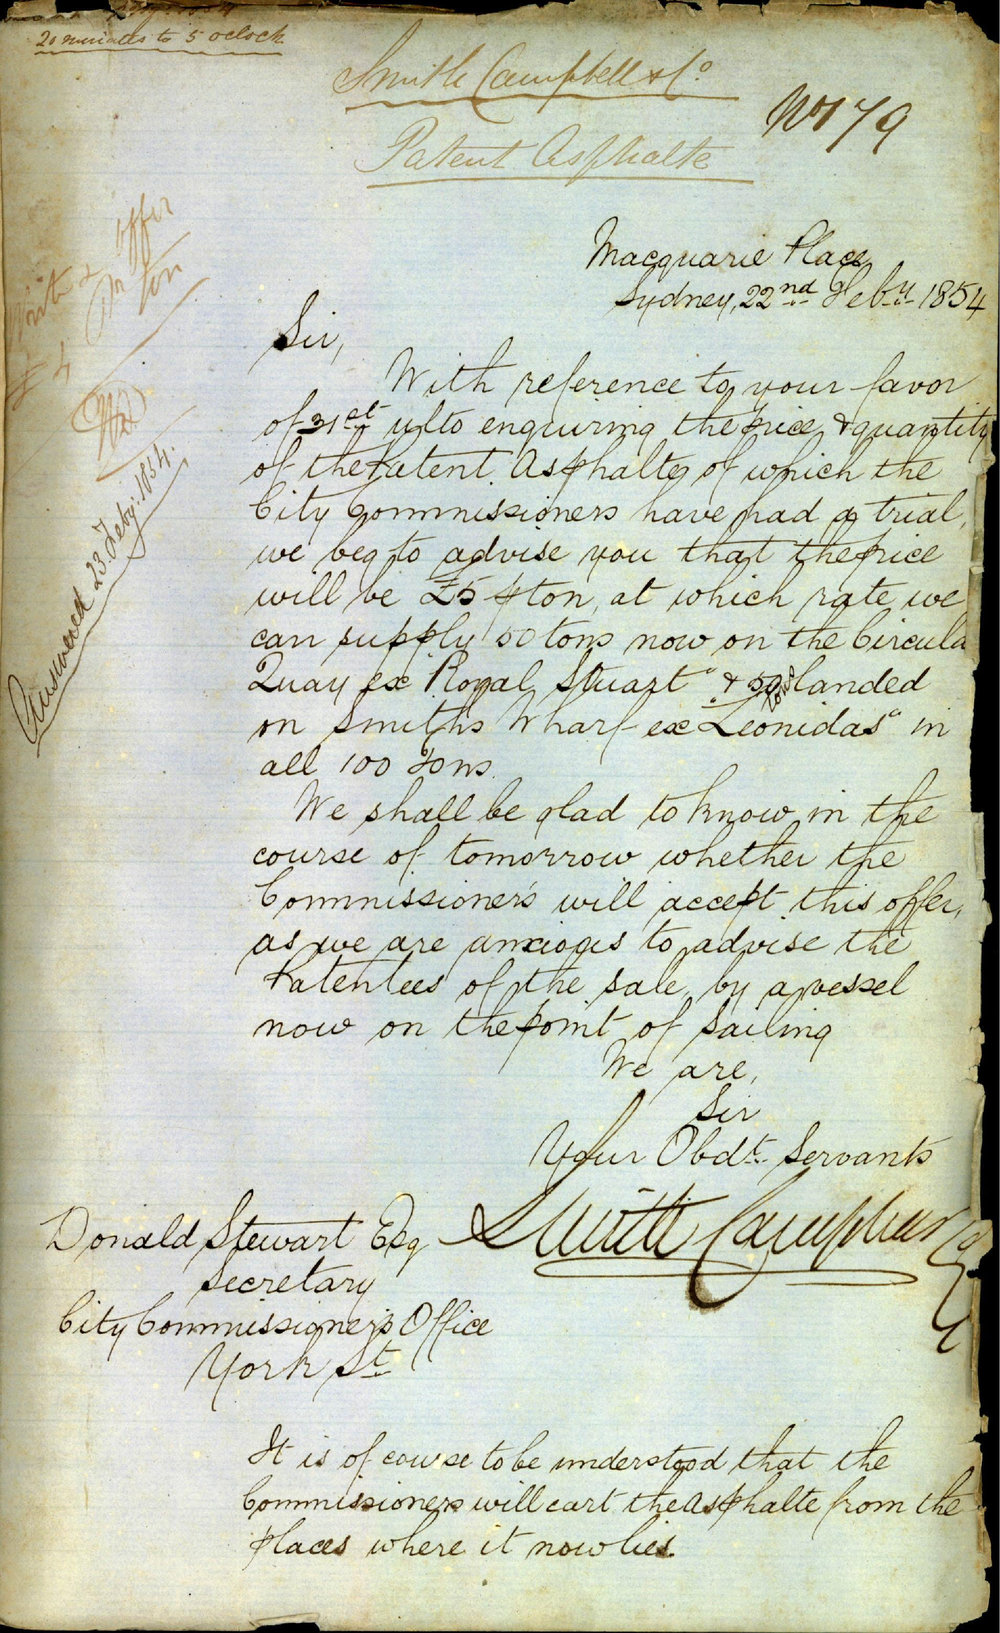 20 minutes to 5 oclock
Smith Campbell & Co
Patent Asphalte
No 179
Write &
offer
£4
ton
Answered 23rd Feby. 1854.
Macquarie Place
Sydney, 22nd Feby. 1854
Sir,
With reference to your favor
of 31st ulto enquiring the price & quantity
of the Patent Asphalte of which the
City Commissioners have had a trial,
we beg to advise you that the price
will be £5 p ton, at which rate we
can supply 50 tons now on the Circula
Quay ex "Royal Stuart" & 50 tons landed
on Smiths Wharf ex "Leonidas" in
all 100 Tons.
We shall be glad to know in the
course of tomorrow whether the
Commissioner's will accept this offer,
as we are anxious to advise the
Patentees of the sale, by a vessel
now on the point of sailing
We are,
Sir
Your Obdt. Servants
Smith Campbell Co
Donald Stewart Esq
Secretary
City Commissioner's Office
York St.
It is of course to be understood that the
Commissioners will cart the Asphalte from the
places where it now lies.